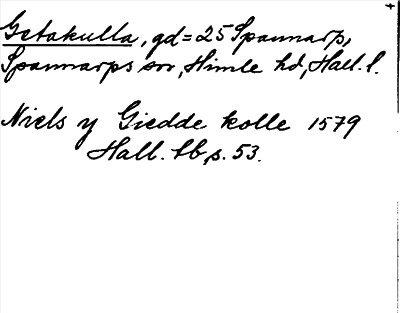 Getakulla, gd = 25 Spannarp,
Spannarps sn, Himle hd, Hall. l.
Niels y Giedde kolle 1579
Hall. tb, s. 53.